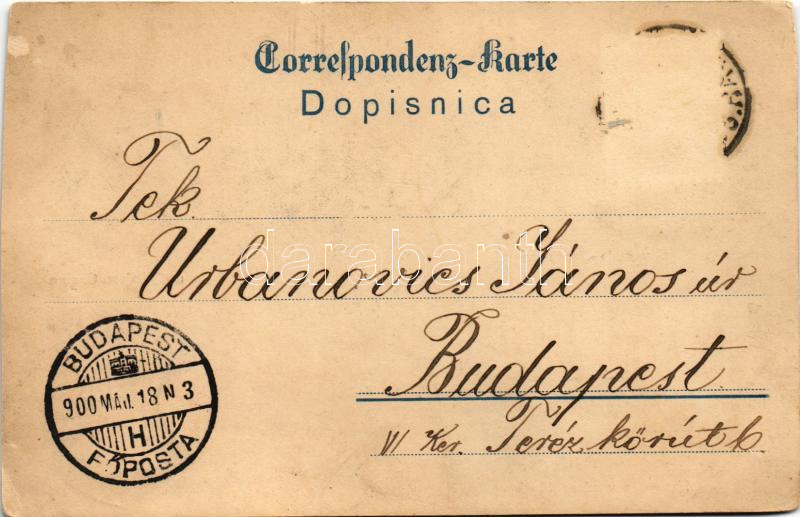 Correſpondenz-Karte
Dopisnica
Tek.
Urbanovics János úr
Budapest
VI Ker. Teréz körút 6.
BUDAPEST
900 MÁJ. 18 N 3
H
FŐPOSTA
darabanth